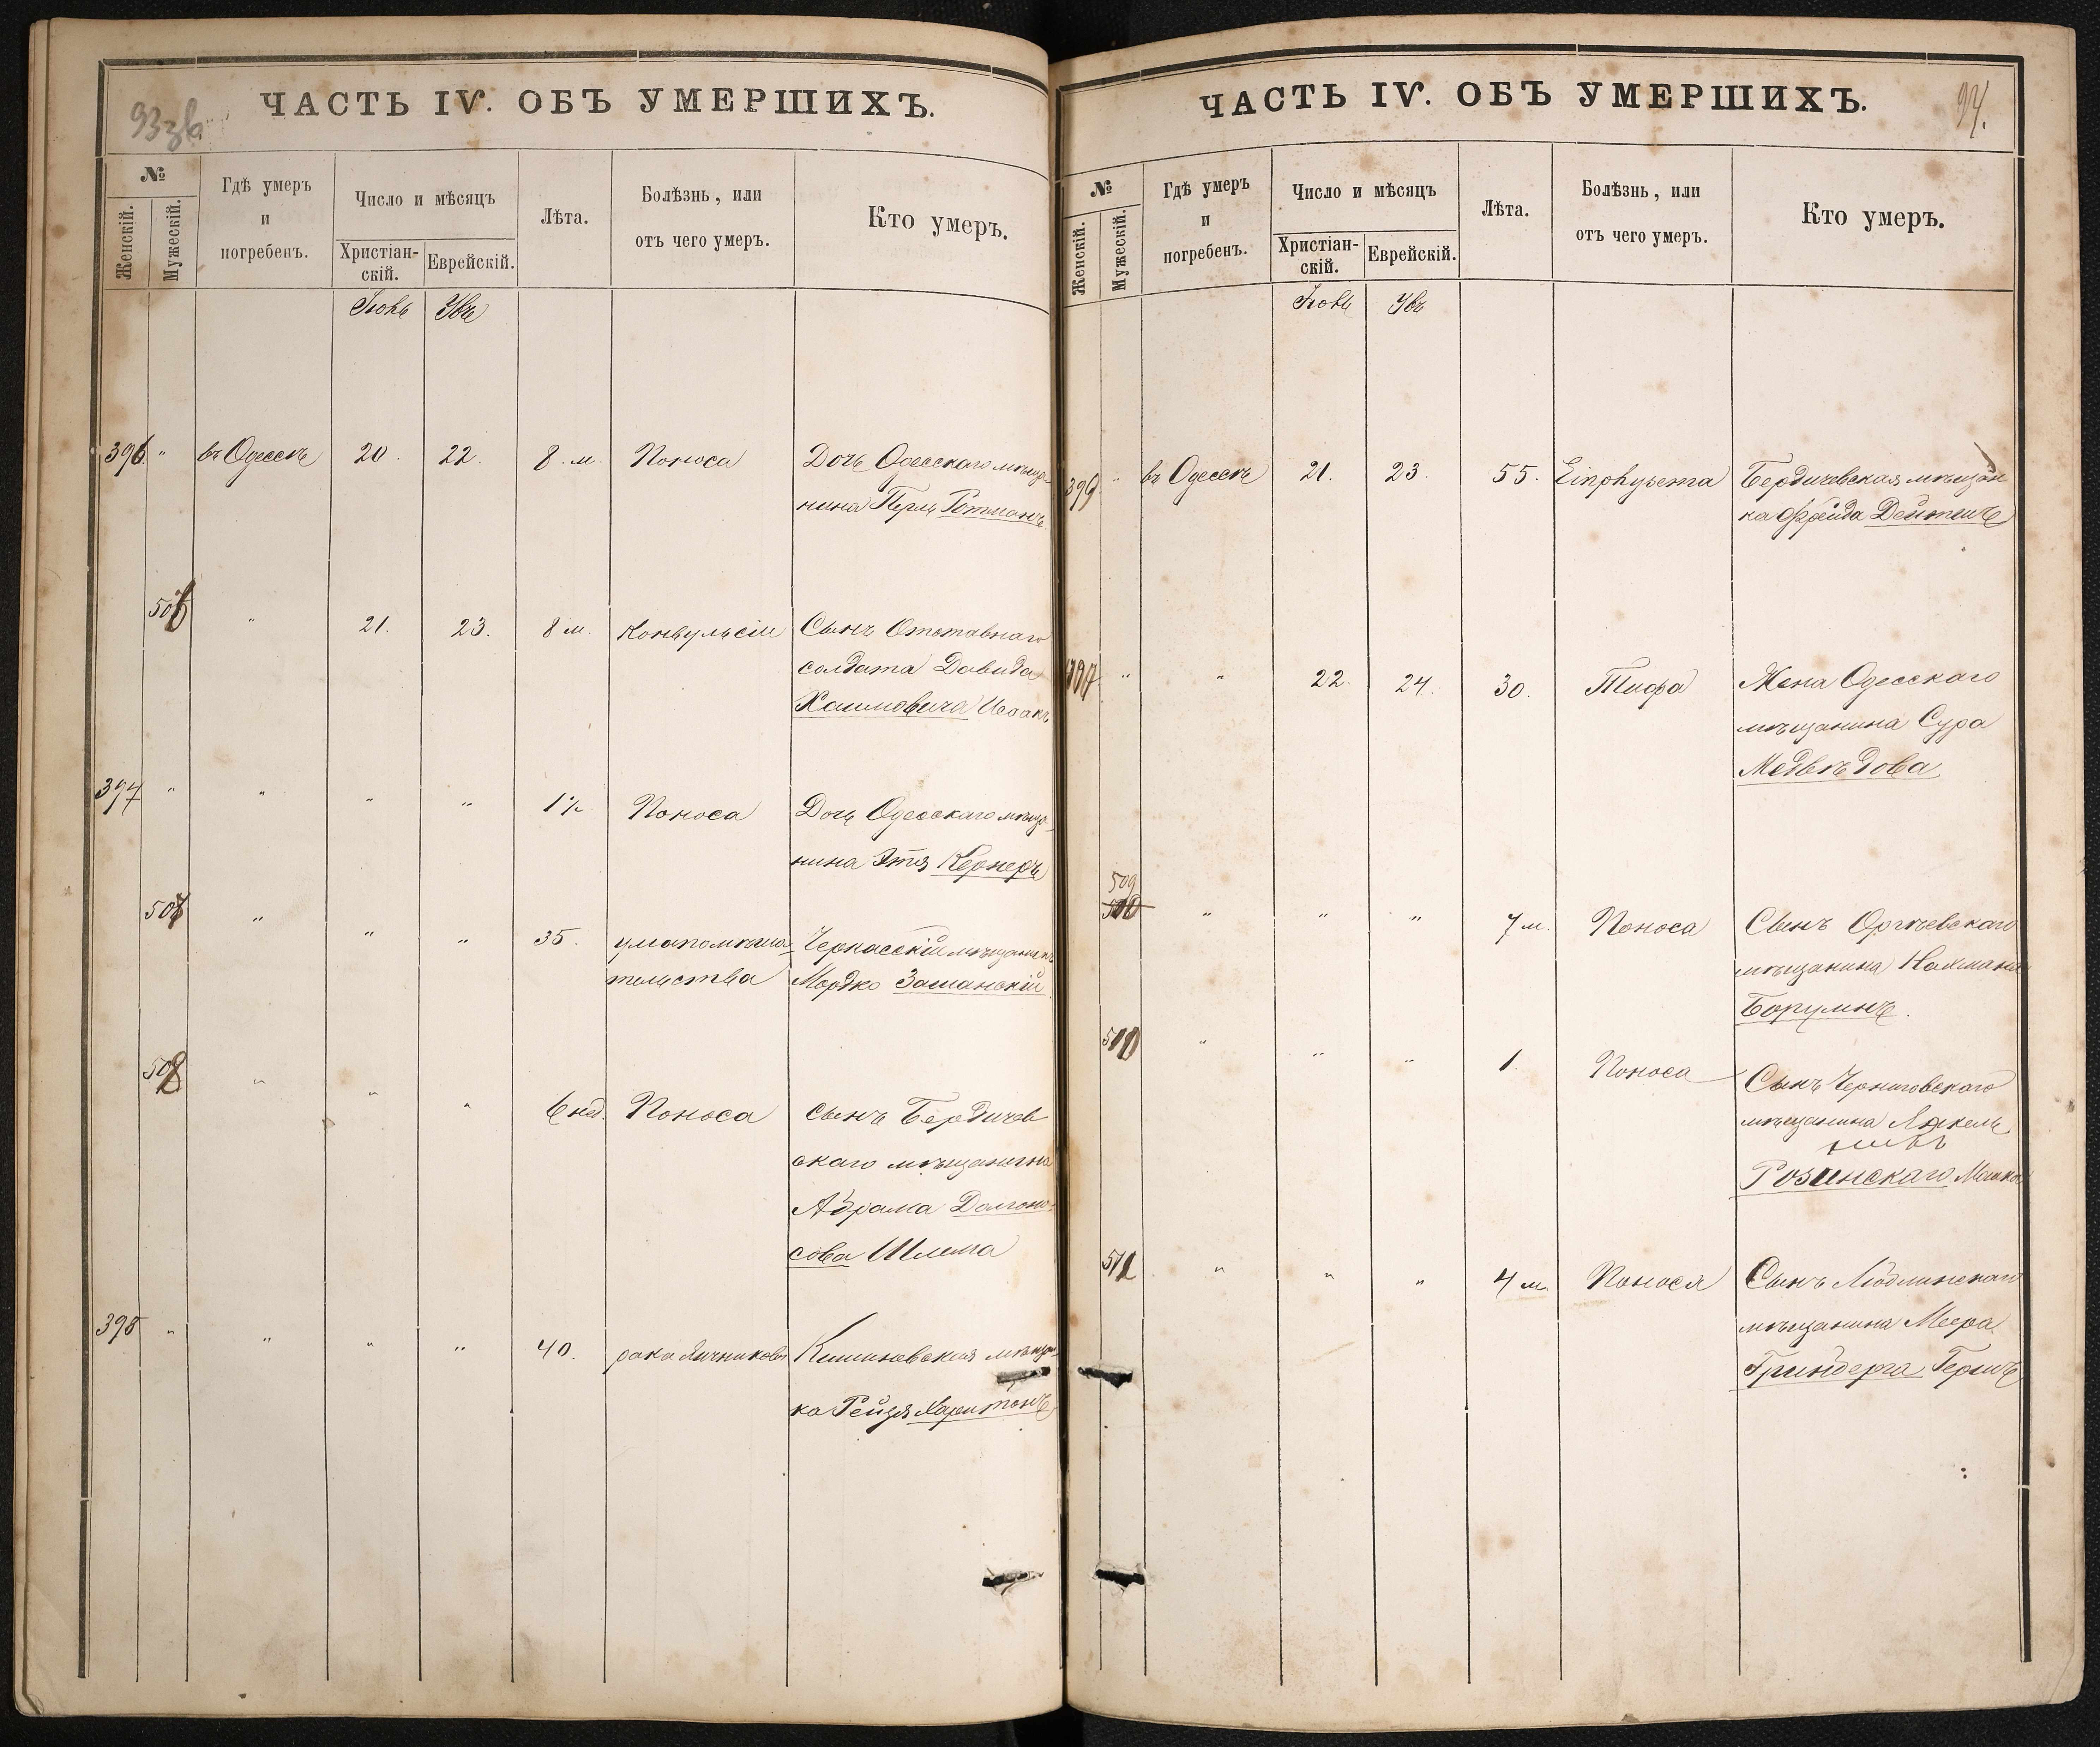 93 зв
ЧАСТЬ IV. ОБЪ УМЕРШИХЪ.
№
Женскій.
Мужескій.
Гдѣ умеръ
и
погребенъ.
Число и мѣсяцъ
Христіан-
скій.
Еврейскій.
Лѣта.
Болѣзнь, или
отъ чего умеръ.
Кто умеръ.
396 " въ Одессѣ 20. 22. 8. м. Поноса Дочь Одесскаго мѣща-
нина Перль Ротманъ
506 " 21. 23. 8 м. Конвульсіи Сынъ Отставнаго
солдата Давида
Хаимовича Исаакъ
397 " " " " Поноса Дочь Одесскаго мѣща-
нина Этя Кернеръ
507 " " " 35. умапомѣша- Черкасскій мѣщанинъ
тельства Мордко Зашанскій
508 " " " 6 нед. Поноса сынъ Бердичев
скаго мѣщанина
Абрама Долгоно-
сова Шлема
398 " " " " 40. рака Яичниковъ Кишиневская мѣщан-
ка Рейзя Харитонъ
94.
ЧАСТЬ IV. ОБЪ УМЕРШИХЪ.
№
Женскій.
Мужескій.
Гдѣ умеръ
и
погребенъ.
Число и мѣсяцъ
Христіан-
скій.
Еврейскій.
Лѣта.
Болѣзнь, или
отъ чего умеръ.
Кто умеръ.
399 " въ Одессѣ 21. 23. 55. Бердичевская мѣщан
ка Фрейда Дейтшъ
" " 22. 24. 30. Тифа Жена Одесскаго
мѣщанина Сура
Медвѣдова
509
510 " " " 7 м. Поноса Сынъ Оргѣевскаго
мѣщанина Нахмана
510 " " " 1. Поноса Сынъ Черниговскаго
мѣщанина Янкель
Розинскаго Мошко
511 " " " 4 м. Поноса Сынъ
мѣщанина Меера
Гринберга Гершъ